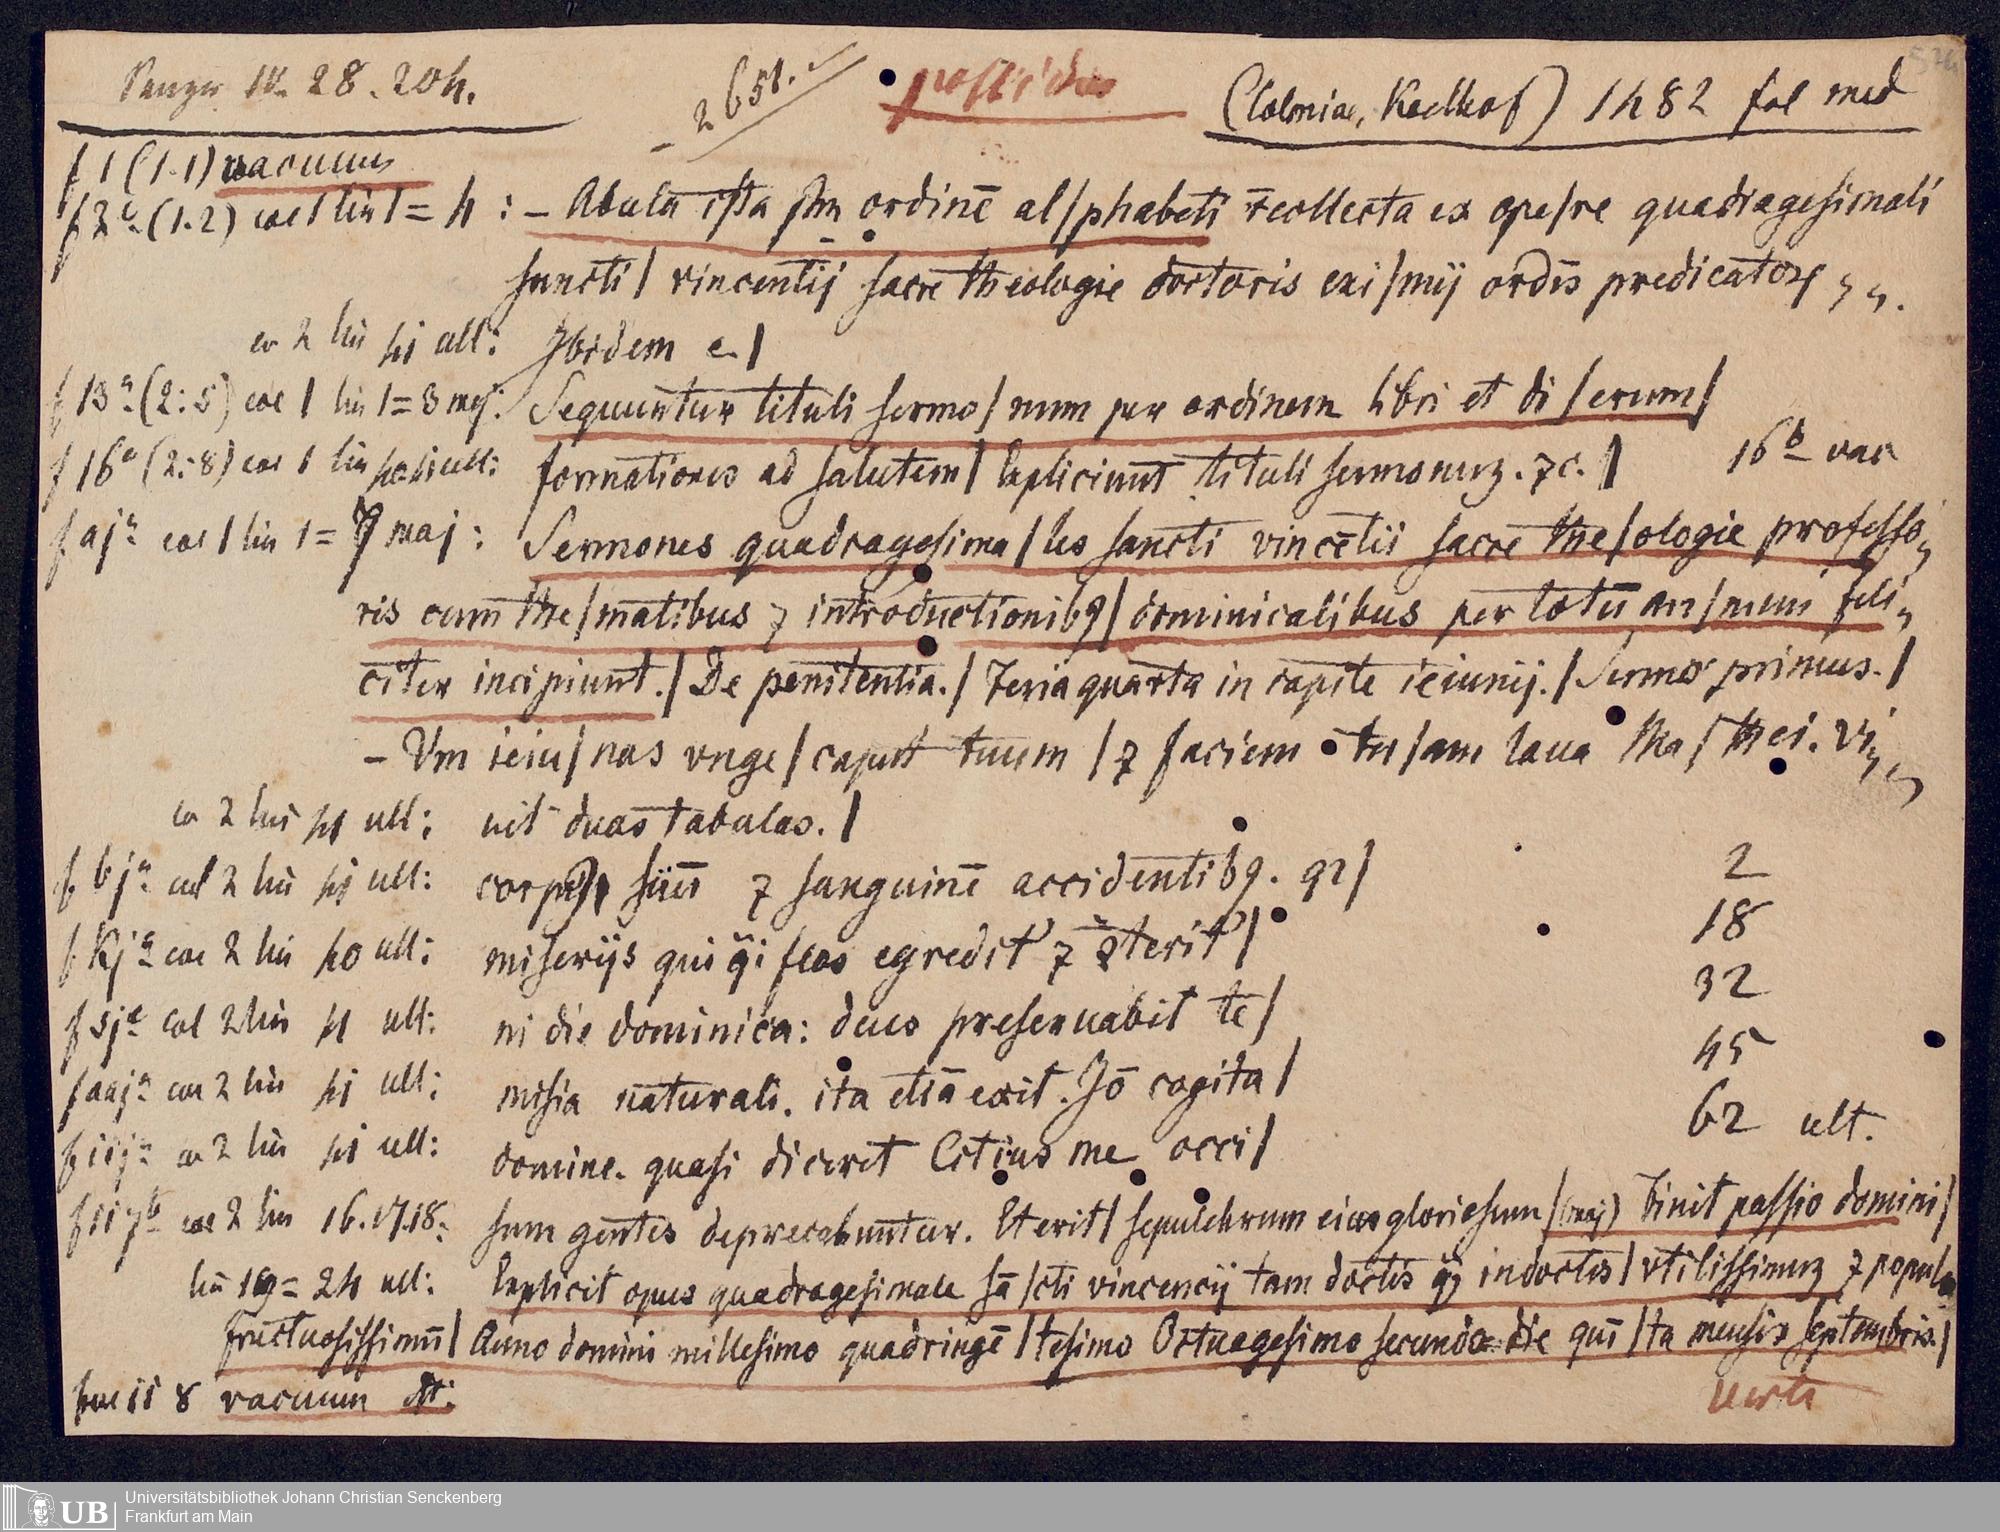 Panzer IV. 28. 204.
2651.
postridie
(Coloniae, Koelhof) 1482 fol med
f 1 (1.1) vacuum
f 2a (1.2) col 1 lin 1 = 4 : – Abula ista scdm ordinē al/phabeti recollecta ex ope/re quadragesimali
sancti / vincentij sacre theologie doctoris exi/mij ordīs predicatorꝝ
co 2 lin 41 ult: Ibidem e. /
f 13a (2:5) col 1 lin 1 = 3 maj: Sequuntur tituli sermo/num per ordinem libri et di/erum /
f 16a (2:8) col 1 lin 40.41 ult: formationes ad salutem / Expliciunt tituli sermonuꝫ. ⁊c. / 16b vac
f aja col 1 lin 1 = 7 maj : Sermones quadragesima/les sancti vincētii sacre the/ologie professo
ris cum the/matibus ⁊ introductionibꝯ / dominicalibus per totū an/num feli
citer incipiunt. / De penitentia. / Feria quarta in capite ieiunij. / Sermo primus. /
– Vm ieiu/nas vnge / caput tuum / ⁊ faciem tu/am laua Ma/thei. vi
co 2 lin 41 ult: uit duas tabulas. /
f bja col 2 lin 41 ult: corpus suū ⁊ sanguinē accidentibꝯ. qꝛ / 2
f kja col 2 lin 40 ult: miserijs qui q̄i flos egredit' ⁊ ꝯterit' / 18
f sja col 2 lin 41 ult: ni die dominica: deus preseruabit te / 32
f aaja col 2 lin 41 ult: misia naturali. ita etiā exit. Jō cogita / 45
f iija co 2 lin 41 ult: domine. quasi diceret Citius me occi / 62 ult.
f ii 7b col 2 lin 16.17.18: sum gentes deprecabuntur. Et erit / sepulchrum eius gloriosum / (maj) Finit passio domini /
lin 19 = 24 ult: Explicit opus quadragesimale sā/cti vincencij tam doctis qꝫ indoctis / vtilissimuꝫ ⁊ popula
fructuosissimū / Anno domini millesimo quadringē/tesimo Octuagesimo secundo die quī/ta mensis septembris. /
fol ii 8 vacuum
verte
Universitätsbibliothek Johann Christian Senckenberg
Frankfurt am Main
UB